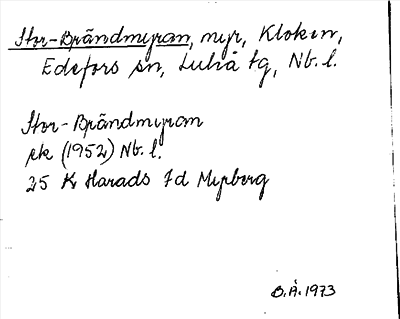 Stor-Brändmyran, myr, Kloken,
Edefors sn, Luleå tg, Nb. l.
Stor-Brändmyran
ek (1952) Nb. l.
25 K Harads 7d Myrberg
B.Å. 1973